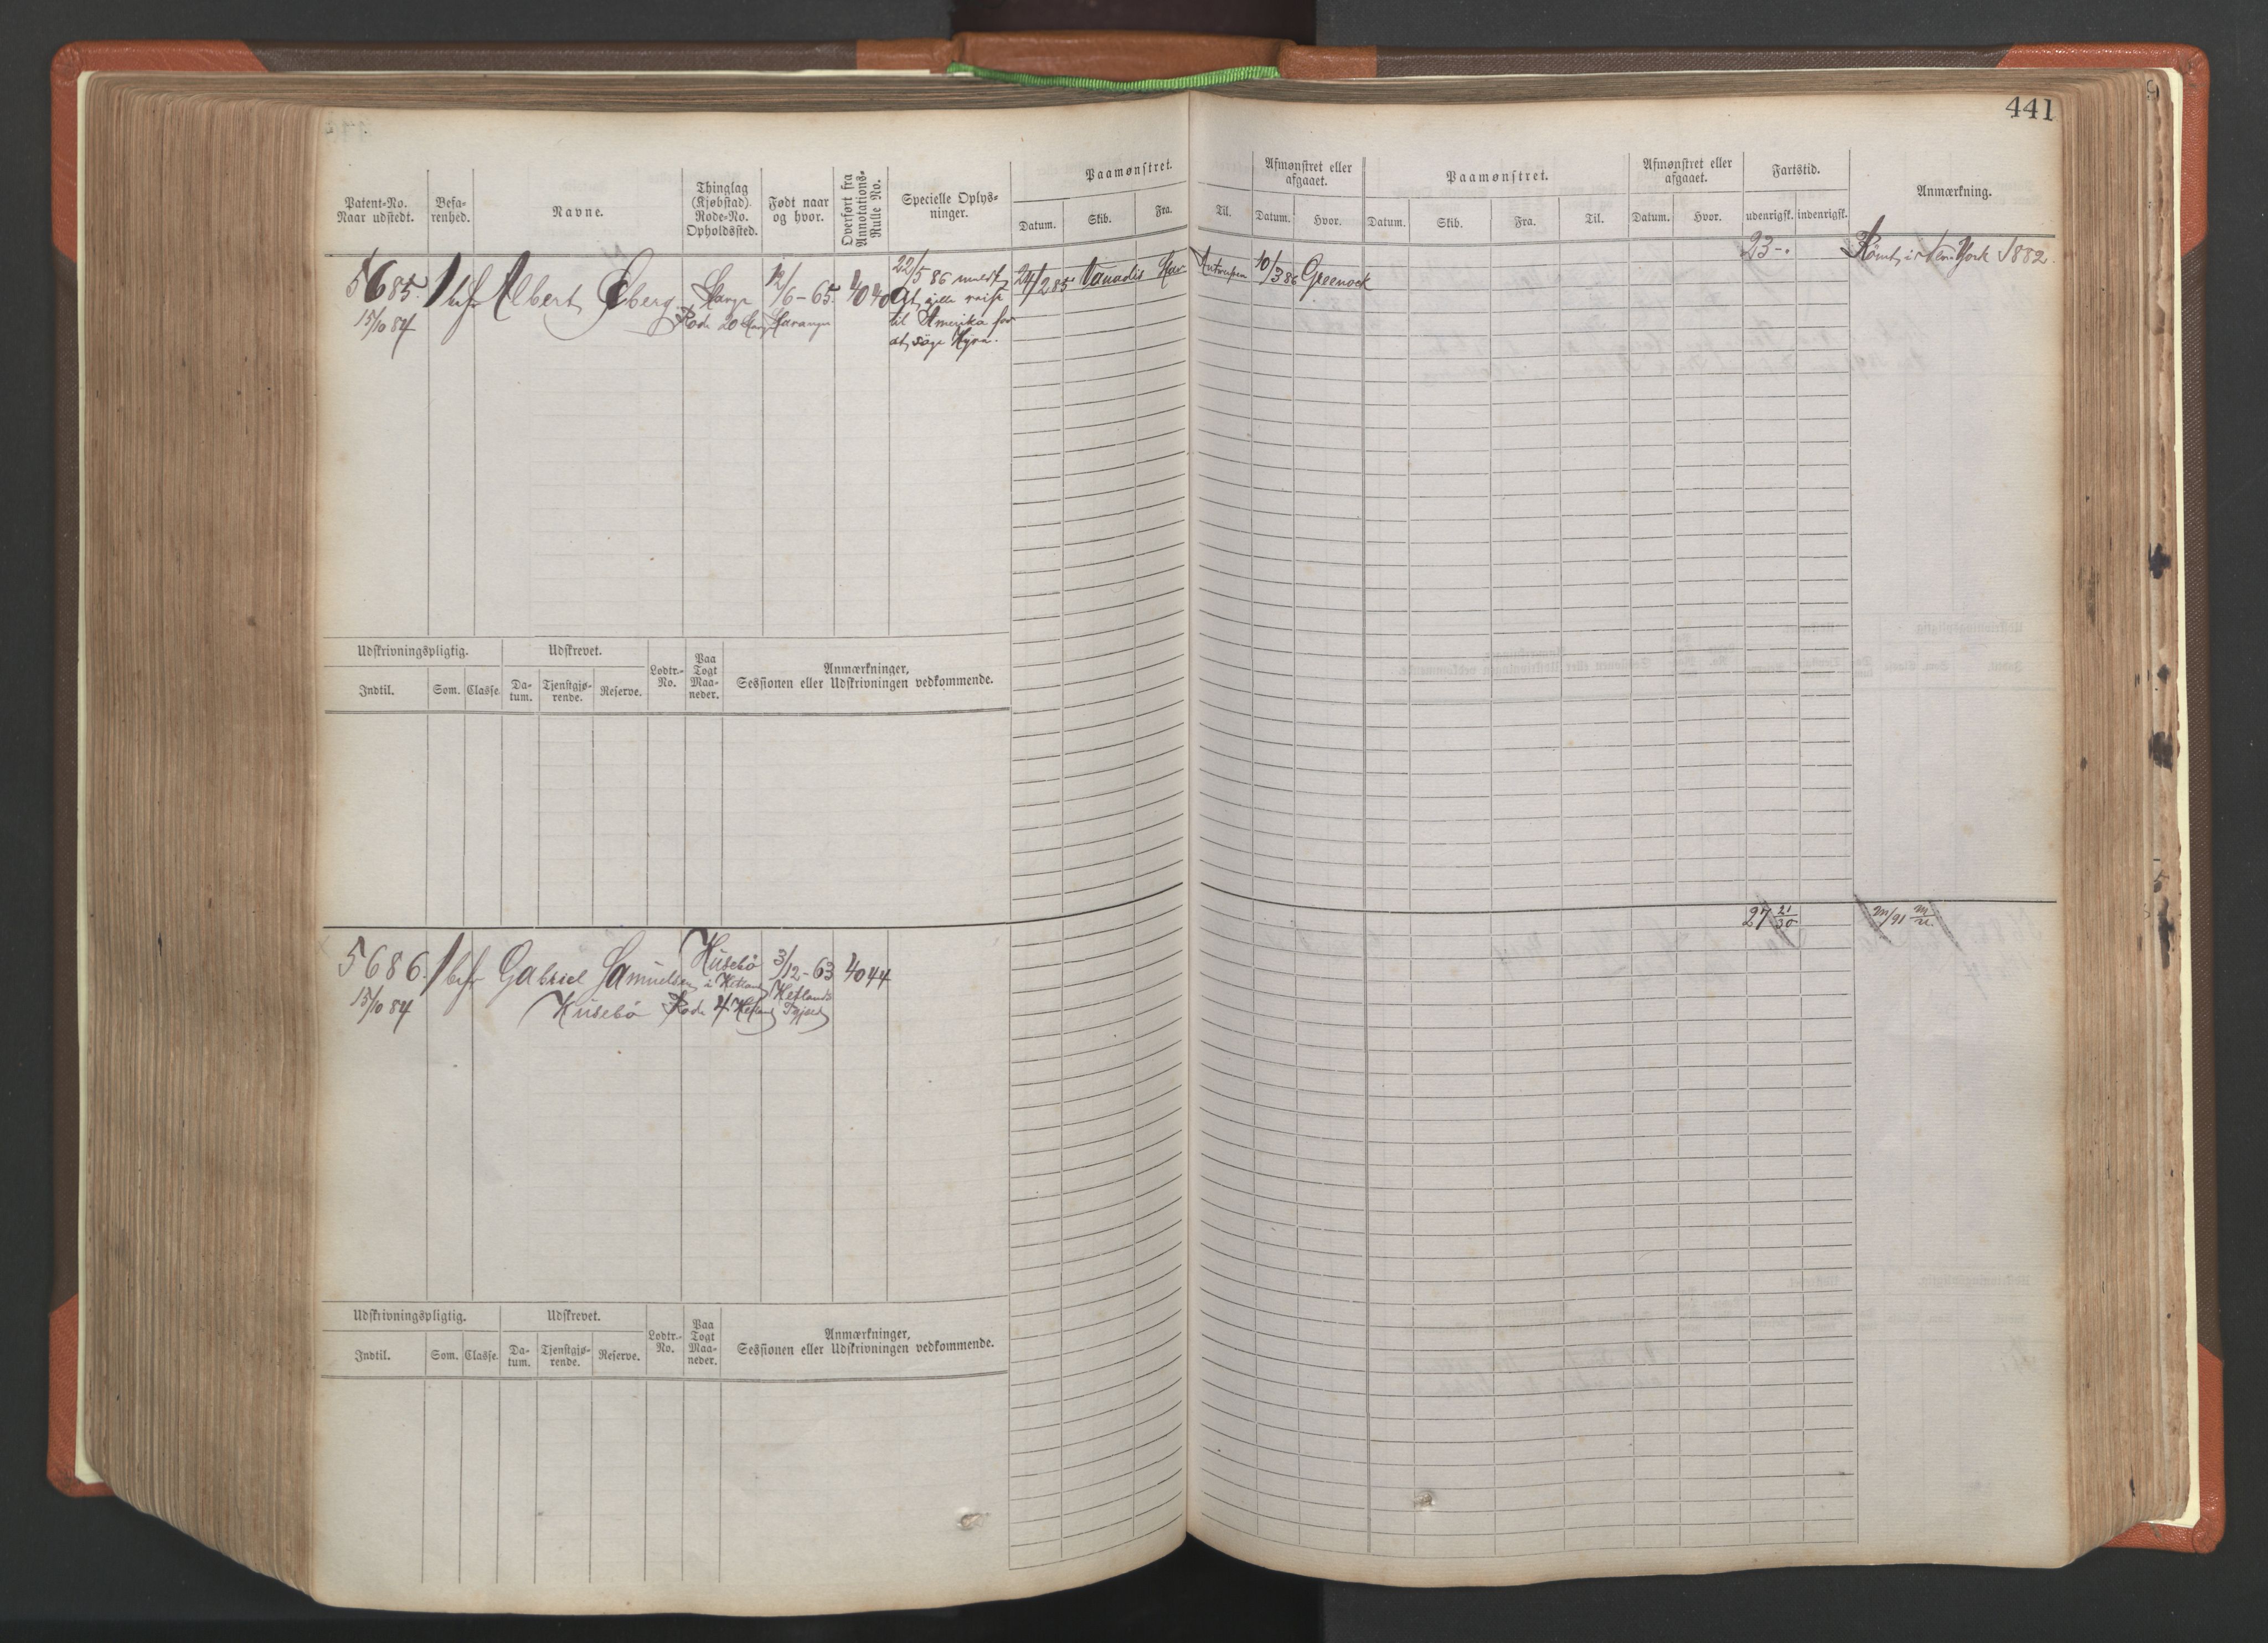 441
Patent-No. Naar udstedt.
Befarenhed.
Navne.
Thinglag (Kjøbstad). Rode-No. Opholdssted.
Født naar og hvor.
Overført fra Annotations-Rulle No.
Specielle Oplysninger.
Paamønstret.
Datum. Skib. Fra. Til.
Afmønstret eller afgaaet.
Datum. Hvor.
Paamønstret.
Datum. Skib. Fra. Til.
Afmønstret eller afgaaet.
Datum. Hvor.
Fartstid.
udenrigsk. indenrigsk.
Anmærkning.
5685. 1 bef Albert Eberg 12/6-65. 4040 22/5 86 meldt
24/2 85 Vanadis Antwerpen 10/3 86 Greenock 23-. Rømt i New York 1882.
15/10 84 Rode 20 Stavanger
at ville reise
til Amerika for
at søge Hyre.
Udskrivningspligtig. Udskrevet. Lodtr.-No. Paa Togt Maaneder. Anmærkninger, Sessionen eller Udskrivningen vedkommende.
Indtil. Som. Classe. Datum. Tjenstgjørende. Reserve.
5686. 1 bef Gabriel Samuelsen Husebø i Hetland 3/12-63 4044 27 21/30
15/10 84 Husebø Rode 4 Hetland Hetlands
Udskrivningspligtig. Udskrevet. Lodtr.-No. Paa Togt Maaneder. Anmærkninger, Sessionen eller Udskrivningen vedkommende.
Indtil. Som. Classe. Datum. Tjenstgjørende. Reserve.